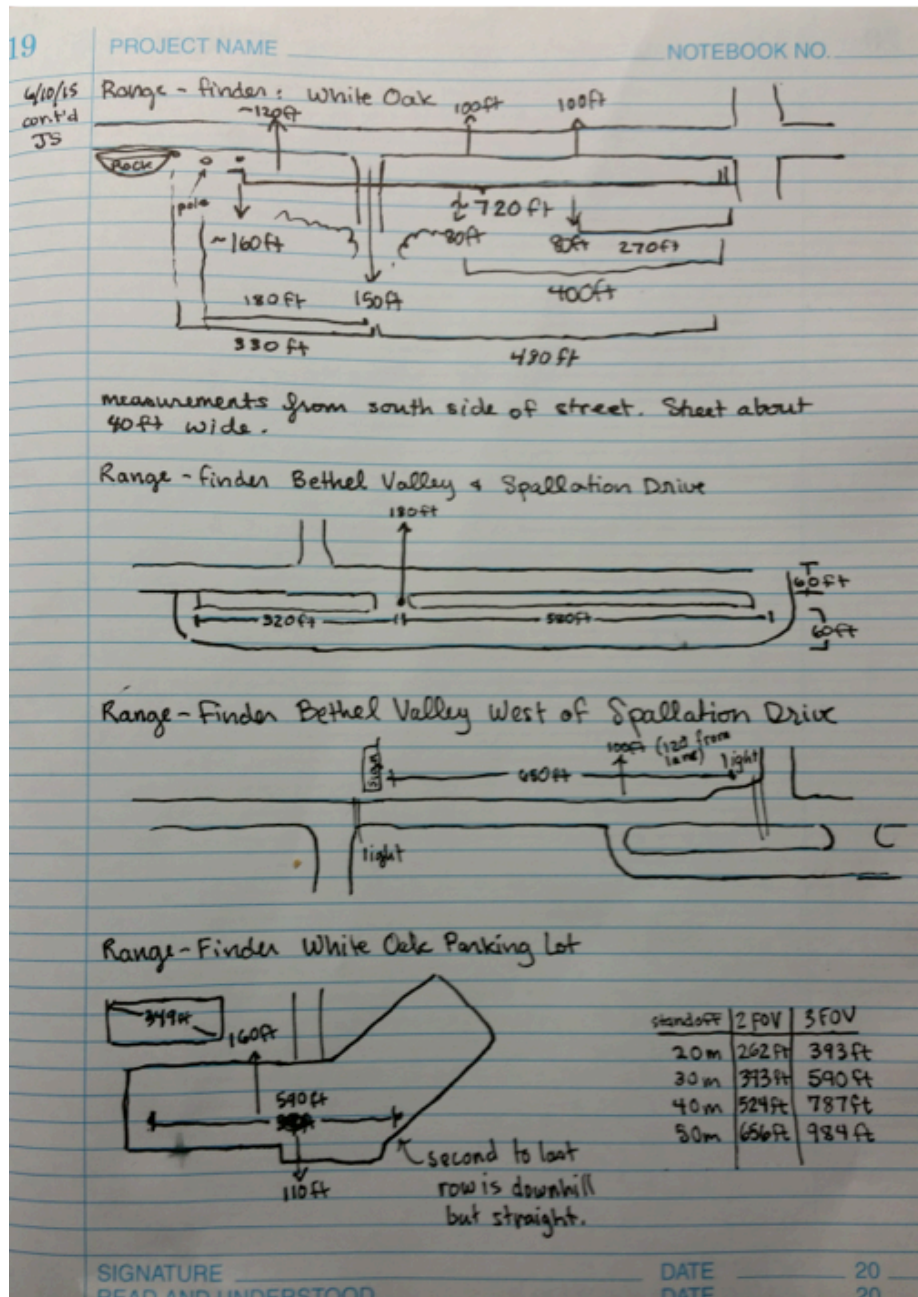 19
PROJECT NAME
NOTEBOOK NO.
6/10/15
cont'd
JS
Range-finder: White Oak
~120ft
100ft
100ft
Rock
pole
~720ft
~160ft
80ft
80ft
270ft
400ft
180ft
150ft
330 ft
480 ft
measurements from south side of street. Street about
40ft wide.
Range-finder Bethel Valley & Spallation Drive
180ft
60ft
320ft
580ft
60ft
Range-Finder Bethel Valley West of Spallation Drive
sign
650ft
100ft (120 from
lane)
light
light
Range-Finder White Oak Parking Lot
349ft
160ft
590ft
110ft
second to last
row is downhill
but straight.
standoff 2 FOV 3 FOV
20m 262ft 393ft
30m 393ft 590ft
40m 524ft 787ft
50m 656ft 984ft
SIGNATURE
DATE
20
READ AND UNDERSTOOD
DATE
20